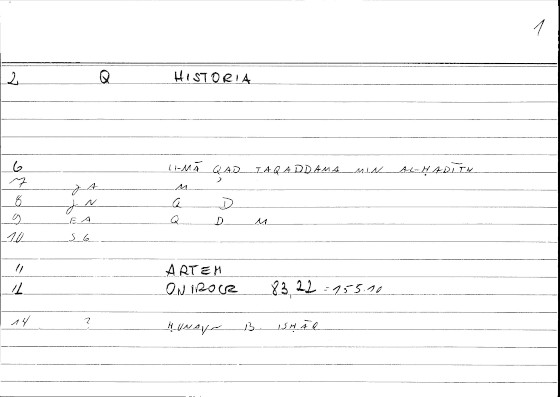 1
2 Q HISTORIA
6 LI-MĀ QAD TAQADDAMA MIN AL-ḤADĪṮI
7 J A M
8 J N Q D
9 E A Q D M
10 S G
11 ARTEM
12 ONIROCR 83,22 = 155.10
14 ? ḤUNAYN B. ISḤĀQ